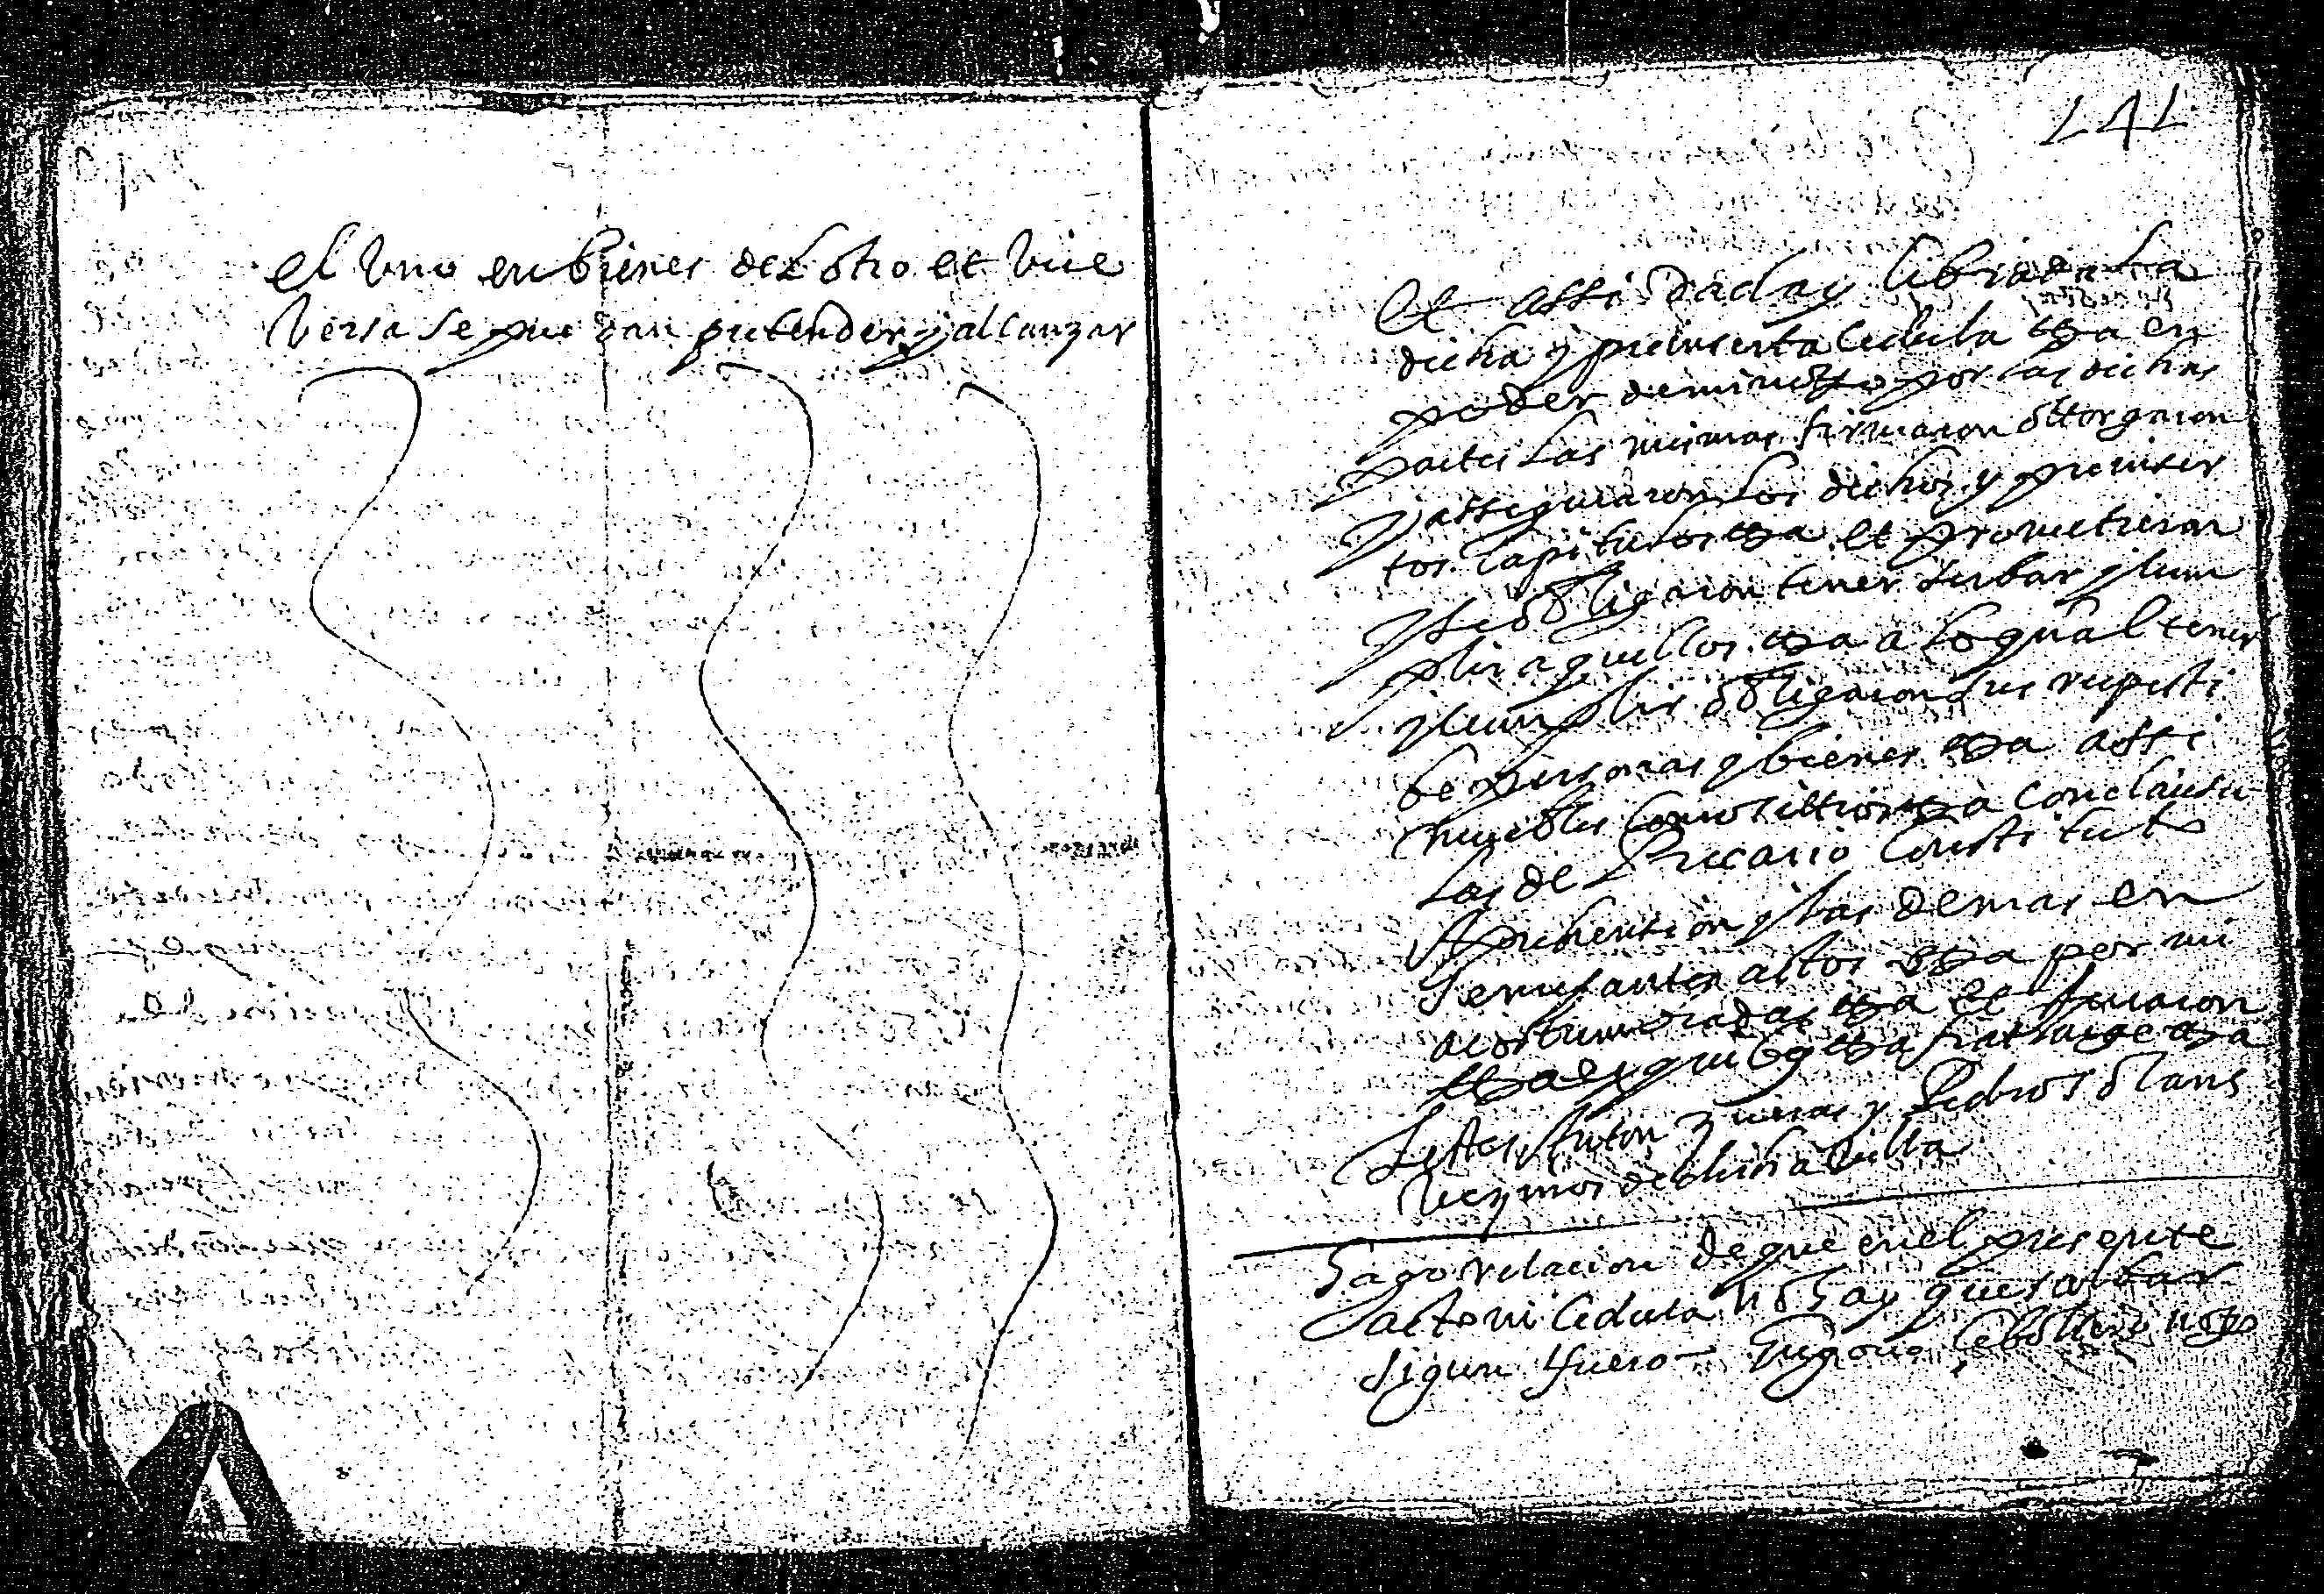 el vno en bienes del otro et vice
versa se pue dan pretender y alcanzar
141
Et assi dada y librada la
dicha y preinserta cedula etta en
poder de mi notto por las dichas
partes las mismas firmaron ottorgaron
y asseguraron los dichos y preinser
tos capitulos etta et prometieron
y se obligaron tener serbar y cum
plir aquellos etta a lo qual tener
y cumplir obligaron sus respecti
be personas y bienes etta assi
muebles como sittios etta con clausu
las de Precario Constituto
Aprehention y las demas en
semejantes actos etta por mi
acostumbradas etta et
etta ex quibus etta fiat large etta
Testes Anton y Pedro
vezinos de dicha villa
Hago relacion de que en el presente
acto ni cedula no hay que salbar
sigun fuero notto